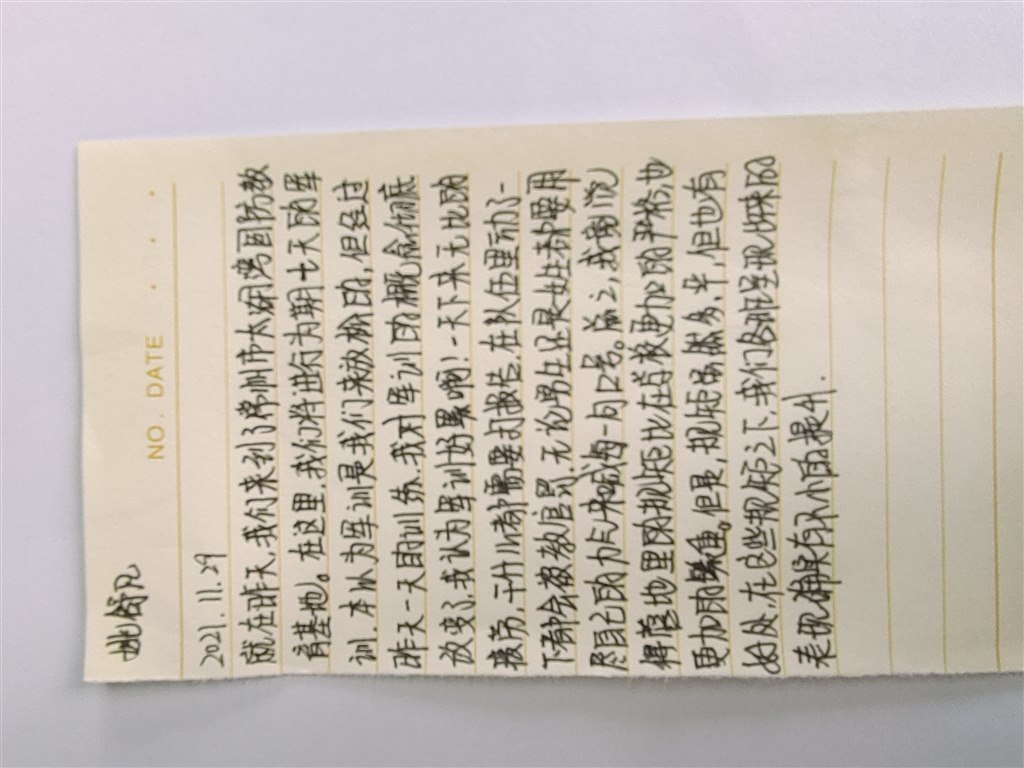 姚舒凡
NO. DATE
2021.11.29
就在昨天,我们来到了常州市太湖湾国防教
育基地。在这里,我们将进行为期七天的军
训.本以为军训是我们来放松的,但经过
昨天一天的训练,我对军训的概念彻底
改变了,我认为军训好累啊!一天下来无比的
疲劳,干什么都需要打报告.在队伍里动了一
下都会被教官骂.无论男生还是女生都要用
尽自己的力气来喊每一句口号。总之,我感觉
得基地里的规矩比在学校更加的严格,也
更加的累。但是,规矩虽然多,半,但也有
好处,在这些规矩之下,我们各班呈现出来的
表现都有不小的提升.